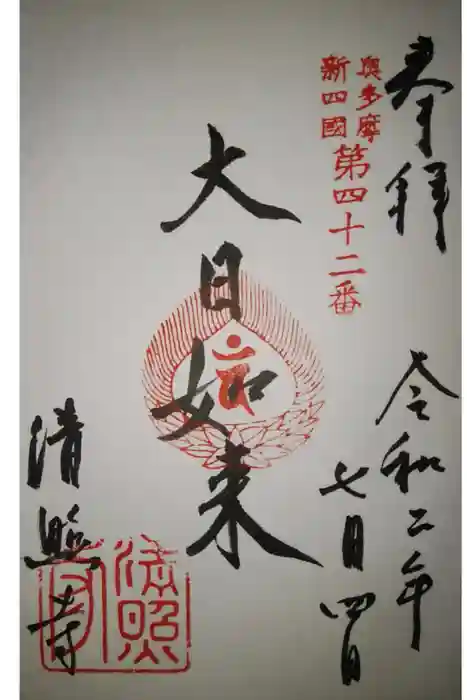 奉拝
令和二年
七月四日
奥多摩
新四國
第四十二番
大日如来
清照寺